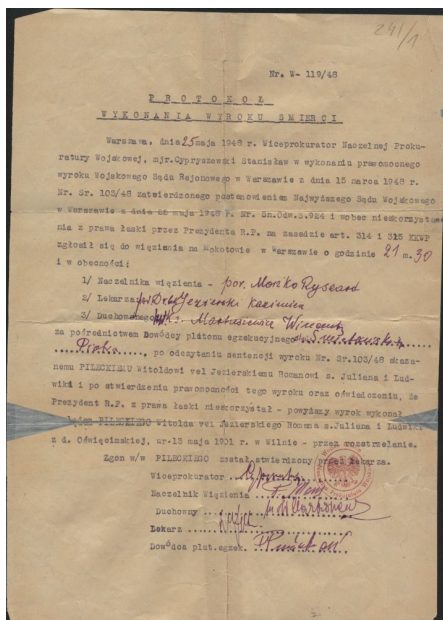 241/1
Nr. W- 119/48
P R O T O K Ó Ł
W Y K O N A N I A W Y R O K U Ś M I E R C I
Warszawa, dnia 25 maja 1948 r. Wiceprokurator Naczelnej Proku-
ratury Wojskowej, mjr.Cypryszewski Stanisław w wykonaniu prawomocnego
wyroku Wojskowego Sądu Rejonowego w Warszawie z dnia 15 marca 1948 r.
Nr. Sr. 103/48 zatwierdzonego postanowieniem Najwyższego Sądu Wojskowego
w Warszawie z dnia maja 1948 r. Nr. Sn.Odw.S.924 i wobec nieskorzysta-
nia z prawa łaski przez Prezydenta R.P. na zasadzie art. 314 i 315 KWP
zgłosił się do więzienia na Mokotowie w Warszawie o godzinie 21 m.30
i w obecności;
1/ Naczelnika więzienia - por. Mońko Ryszard
2/ Lekarza Dr Jezierski Kazimierz
3/ Duchownego Martusiewicz Wincenty
za pośrednictwem Dowódcy plutonu egzekucyjnego Śmietański
Piotra, po odczytaniu sentencji wyroku Nr. Sr.103/48 skaza-
nemu PILECKIEMU Witoldowi vel Jezierskiemu Romanowi s. Juliana i Lud-
wiki i po stwierdzeniu prawomocności tego wyroku oraz oświadczeniu, że
Prezydent R.P. z prawa łaski nieskorzystał - powyższy wyrok wykonał
PILECKIEGO Witolda vel Jezierskiego Romana s.Juliana i Ludwiki
z d. Oświęcimskiej, ur.13 maja 1901 r. w Wilnie - przez rozstrzelanie.
Zgon w/w PILECKIEGO został stwierdzony przez lekarza.
Wiceprokurator
Naczelnik Więzienia
Duchowny
Lekarz
Dowódca plut.egzek.